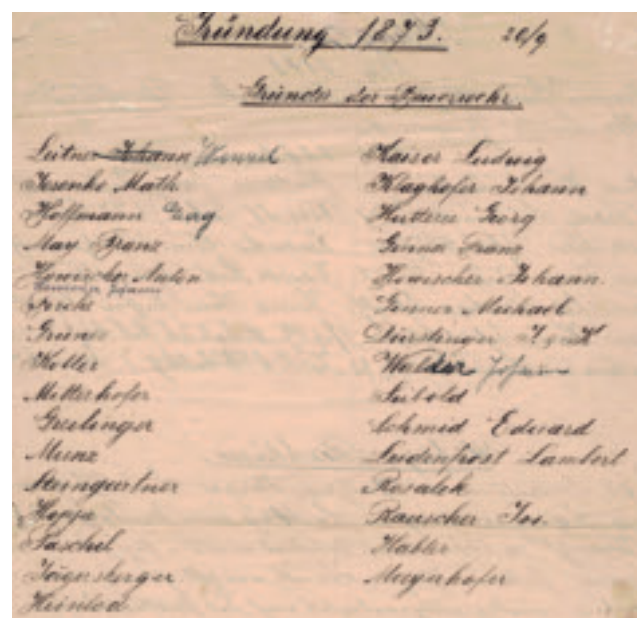 Gründung 1873. 20/9
Gründer der Feuerwehr.
Leitner Johann Wenzel
Jesenko Math.
Hoffmann Georg
May Franz
Howischer Anton
Johann
Grüner
Koller
Mitterhofer
Greilinger
Munz
Steingartner
Hopja
Taschel
Jägersberger
Kaiser Ludwig
Klaghofer Johann
Georg
Ginner Franz
Howischer Johann.
Ginner Michael
Dürstinger
Walder Johann
Seibold
Schmid Eduard
Ludenfrost Lambert
Rosalek
Rauscher Jos.
Habler
Mayerhofer